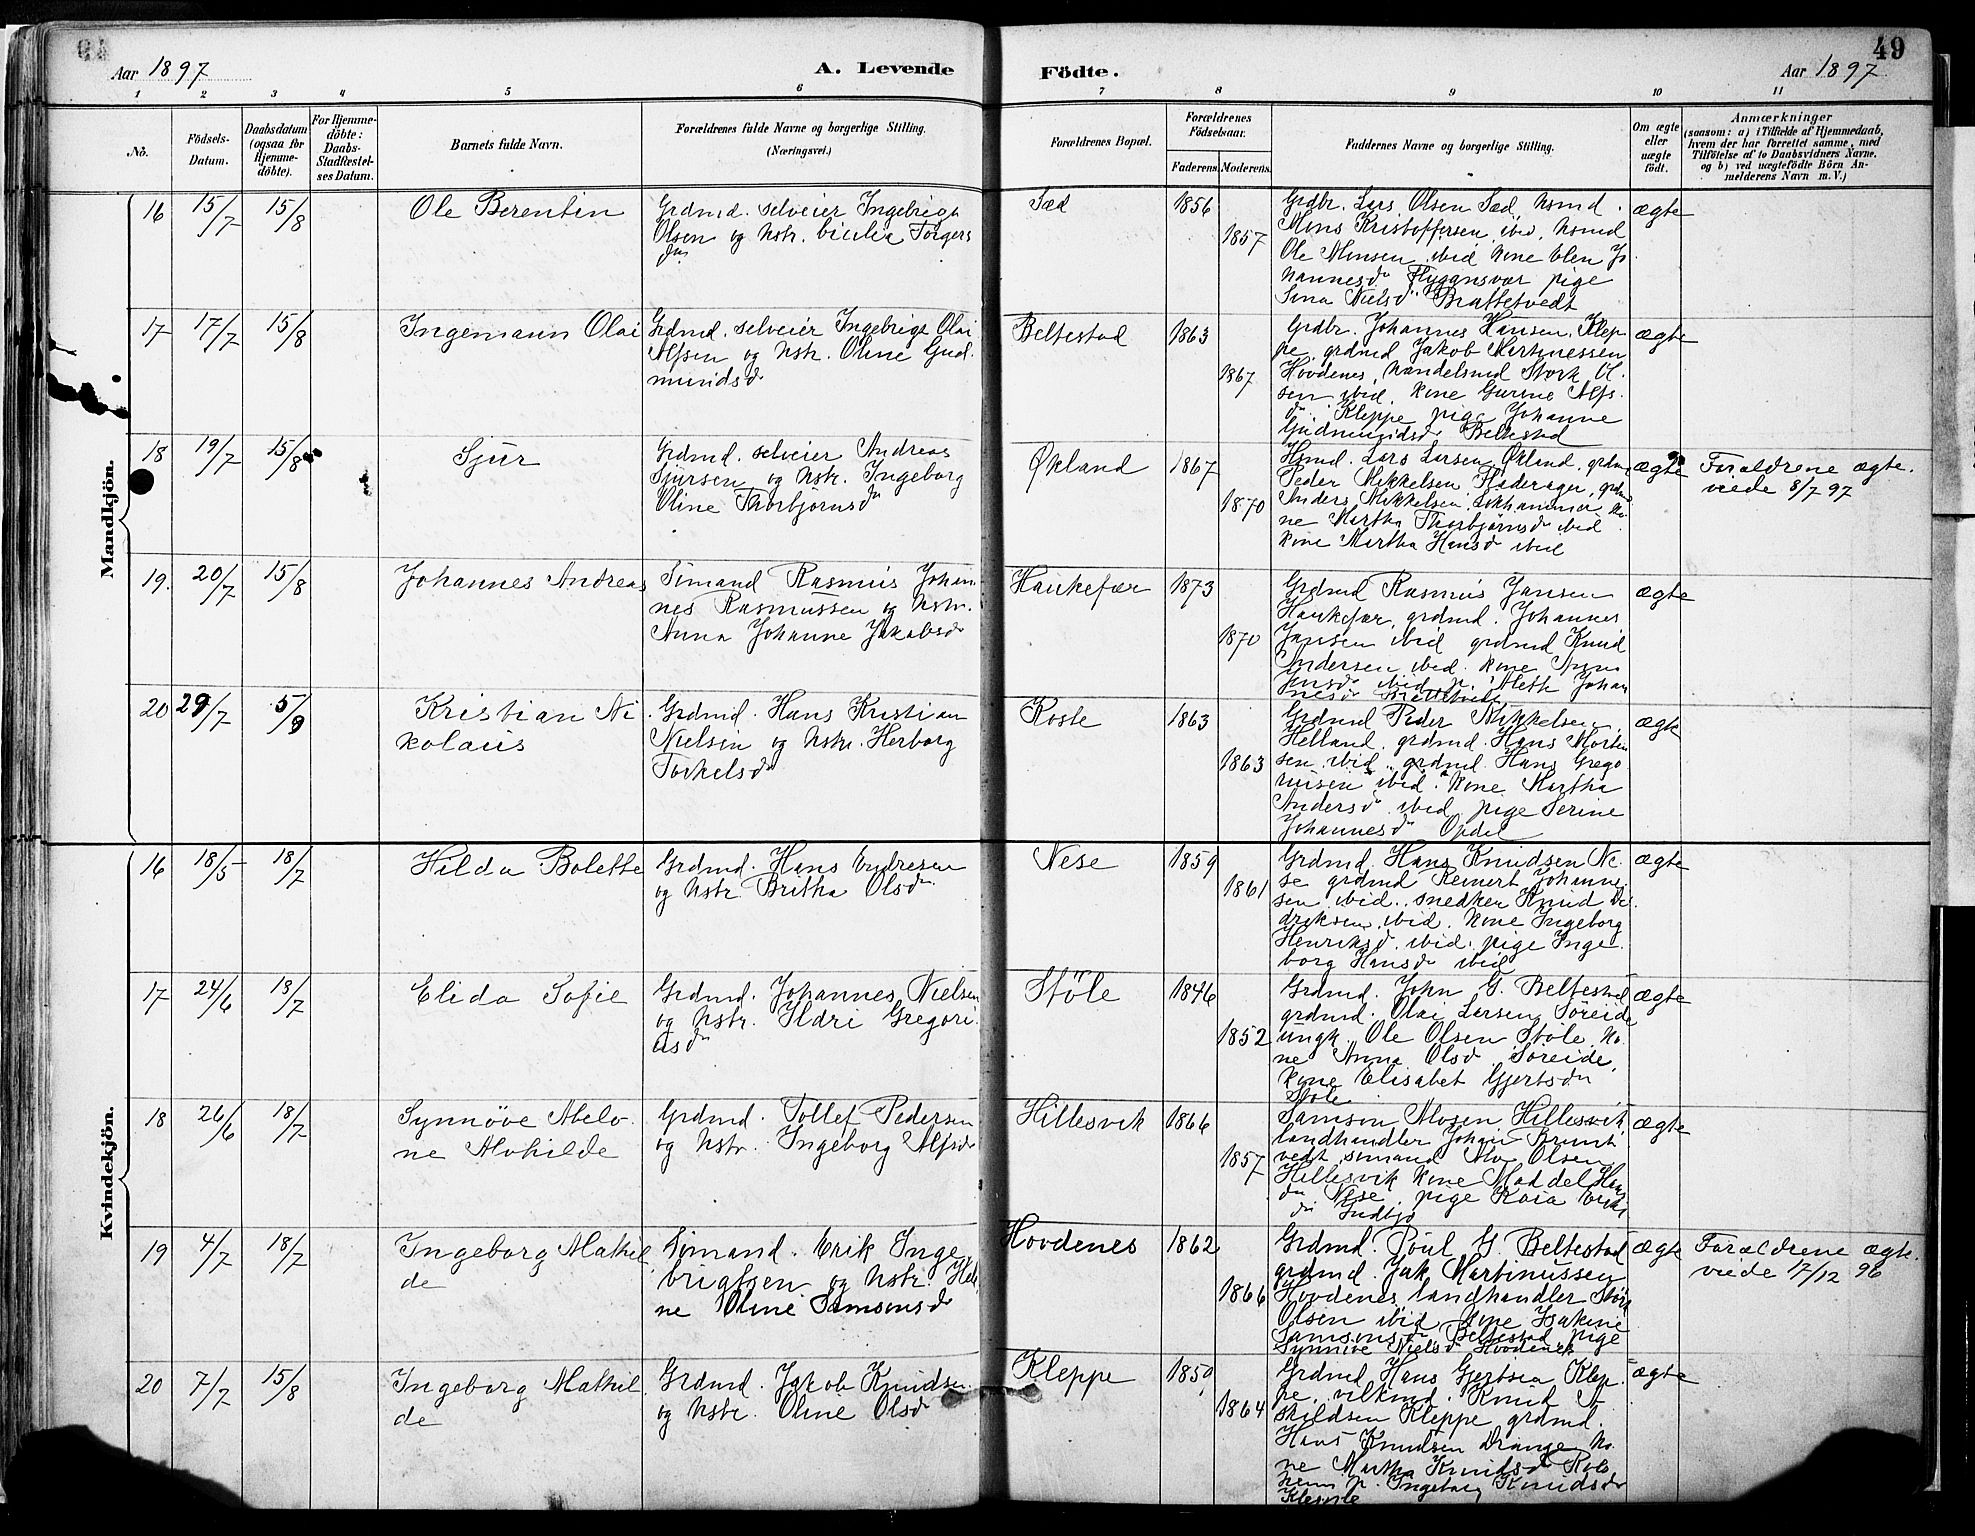 Aar 1897
A. Levende Födte.
49
Aar 1897
1 2 3 4 5 6 7 8 9 10 11
No.
Födsels-Datum.
Daabsdatum (ogsaa for Hjemme-döbte).
For Hjemme-döbte: Daabs-Stadfæstel-ses Datum.
Barnets fulde Navn.
Forældrenes fulde Navne og borgerlige Stilling.
(Næringsvei.)
Forældrenes Bopæl.
Forældrenes Födselsaar.
Faderens. Moderens.
Faddernes Navne og borgerlige Stilling.
Om ægte eller uægte födt.
Anmærkninger
(saasom: a) i Tilfælde af Hjemmedaab,
hvem der har forrettet samme, med
Tilföielse af to Daabsvidners Navne,
og b) ved uægtefödte Börn An-
melderens Navn m. V.)
Mandkjön.
16 15/7 15/8 Ole Berentin
Grdmd. selveier Ingebrigt
Olsen og hstr. Cicilia Torgers
dtr
Sæd 1856 1857
Grdbr. Lars Olsen Sæd, hsmd.
Mons Kristoffersen ibid, hsmd
Ole Monsen ibid kone Elen Jo
hannesdr Flyggnsvær pige
Sina Nielsdr Brattetvedt
ægte
17 17/7 15/8 Ingemann Olai
Grdmd. selveier Ingebrigt Olai
Alfsen og hstr. Oline Gud
mundsdr
Beltestad 1863 1867
Grdbr. Johannes Hansen, Klep
pe, grdmd Jakob Martinessen
Hovdenes, handelsmd Stork Ol.
sen ibid, kone Gurine Alfs.
dr. Kleppe pige Johanne
Gudmundsdr Beltestad
ægte
18 19/7 15/8 Sjur
Grdmd. selveier Andreas
Sjursen og hstr. Ingeborg
Oline Thorbjørnsdr
Økland 1867 1870
Hsmd. Lars Larsen Økland, grdm
Peder Mikkelsen Haderager, grdmd
Anders Mikkelsen ko
ne Martha Thorbjørnsdr ibid
kone Martha Hansdr ibid
ægte
Forældrene ægte.
viede 8/7 97
19. 20/7 15/8 Johannes Andreas
Sømand Rasmus Johan
nes Rasmussen og hstr.
Anna Johanne Jakobsdr
Haukefær 1873 1870
Grdmd Rasmus Jansen
Haukefær, grdmd. Johannes
Jansen ibid grdmd Knud
Andersen ibid. kone Anna
Jensdr ibid p. Aleth Johan
nesdr
ægte
20 29/7 5/9 Kristian Ni
kolaus
Grdmd. Hans Kristian
Nielsen og hstr. Herborg
Torkelsdr
Koste 1863 1863
Grdmd Peder Mikkelsen
Helland, grdmd. Hans Morten
sen ibid, grdmd Hans Grego
riusen ibid. kone Martha
Andersdr ibid pige Serine
Johannesdr Opdal
ægte
Kvindekjön.
16 18/5 18/7 Hilda Bolette
Grdmd. Hans Endresen
og hstr Britha Olsdr
Nese 1859 1861
Grdmd. Hans Knudsen Ne
se grdmd Reinert Johanne
sen ibid. snedker Knud Di
driksen ibid. kone Ingeborg
Henriksdr. ibid. pige Inge
borg Hansdr ibid
ægte
17 24/6 18/7 Elida Sofie
Grdmd. Johannes Nielsen
og hstr. Ildri Gregori
usdr
Støle 1846 1852
Grdmd. John G. Beltestad
grdmd. Olai Larsen Søreide
ungk. Ole Olsen Støle. ko
ne Anna Olsdr Søreide,
kone Elisabet Gjertsdr
Støle
ægte
18 26/6 18/7 Synnöve Melo
ne Mohilde
Grdmd. Tollef Pedersen
og hstr. Ingeborg Alfsdr
Hillesvik 1866 1857
Samson Mosen Hillesvik
landhandler Johan Brunt
vedt sømand Mo Olsen
Hillesvik kone Maddel Hans
dr Nese, pige Kaia Eriks
dr Indbjo
ægte
19 4/7 18/7 Ingeborg Mathil
de
Sömand. Erik Inge
brigtsen og hstr. Hele
ne Oline Samsonsdr
Hovdenes 1862 1866
Grdmd. Poul G. Beltestad
grdmd. Jak Martinussen
Hovdenes landhandler Störk
Olsen ibid, kone Isakine
Samsonsdr Beltestad pige
Synnive Nielsdr Hovdenes
ægte
Forældrene ægte.
viede 17/12 96
20 7/7 15/8 Ingeborg Mathil
de
Grdmd. Jakob Knudsen
og hstr. Oline Olsdr
Kleppe 1859 1864
Grdmd Hans Gjertsen Klep
pe, vilkmd. Knud A
skildsen Kleppe grdmd.
Hans Knudsen Drange ko
ne Martha Knudsdr Rob
heim p. Ingeborg Knudsdr
Kleppe
ægte